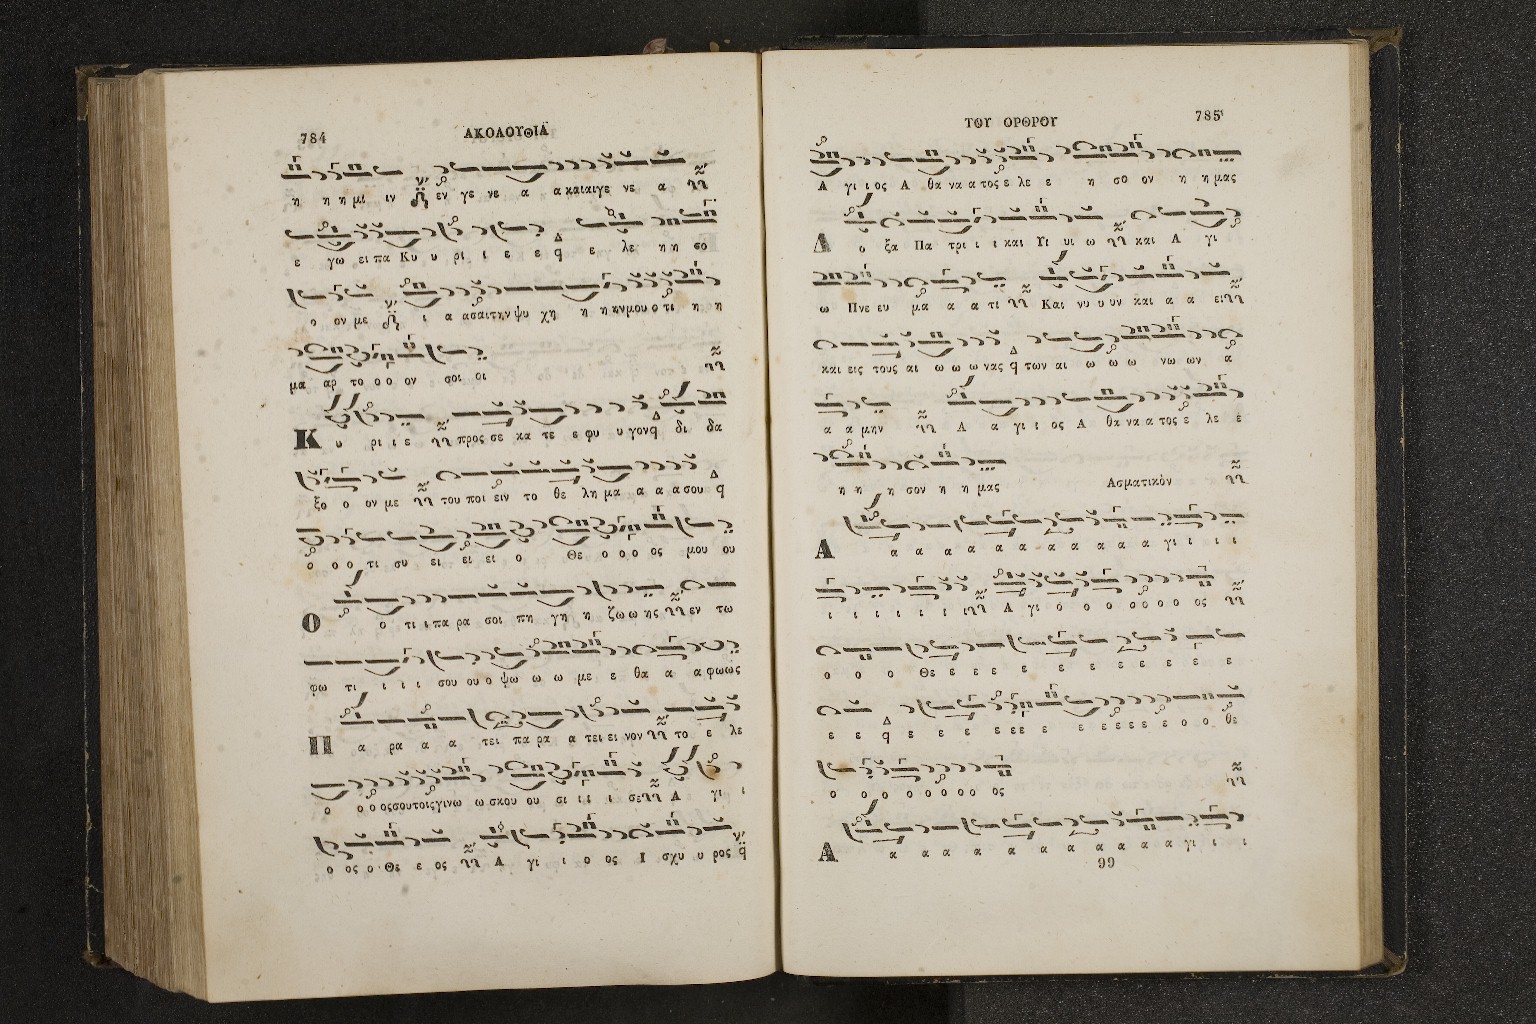 784
ΑΚΟΛΟΥΘΙΑ
η η η μι ιν εν γε νε α α και αι γε νε α
ε γω ει πα Κυ υ ρι ι ε ε ε λε η η σο
ο ον με ι α α σαι την ψυ χη η η ην μου ο τι η η
μα αρ το ο ο ον σοι οι
Κ υ ρι ι ε προς σε κα τε ε φυ υ γον δι δα
ξο ο ον με του ποι ειν το θε λη μα α α α σου
ο ο ο τι συ ει ει ει ο Θε ο ο ο ος μου ου
Ο ο τι ι πα ρα σοι πη γη η ζω ω ης εν τω
φω τι ι ι ι σου ου ο ψω ω ω με ε θα α α φως
Π α ρα α α τει πα ρα α τει ει νον το ε λε
ο ο ο ος σου τοις γι νω ω σκου ου σι ι ι ι σε Α γι ι
ο ος ο Θε ε ος Α γι ι ο ος Ι σχυ υ ρος
ΤΟΥ ΟΡΘΡΟΥ
785
Α γι ι ος Α θα να α τος ε λε ε η σο ον η η μας
Δ ο ξα Πα τρι ι ι και Υι υι ω και Α γι
ω Πνε ευ μα α α τι Και νυ υ υν και α α ει
και εις τους αι ω ω ω νας των αι ω ω ω νω ων α
α α μην Α α γι ι ος Α θα να α τος ε λε ε
η η η σον η η μας Ασματικὸν
Α α α α α α α α α α α α γι ι ι ι
ι ι ι ι ι ι ι Α γι ο ο ο ο ο ο ο ο ος
ο ο ο Θε ε ε ε ε ε ε ε ε ε ε ε
ε ε ε ε ε ε ε ε ε ε ε ε ε ε ο ο θε
ο ο ο ο ο ο ο ο ος
Α α α α α α α α α α α γι ι ι
99